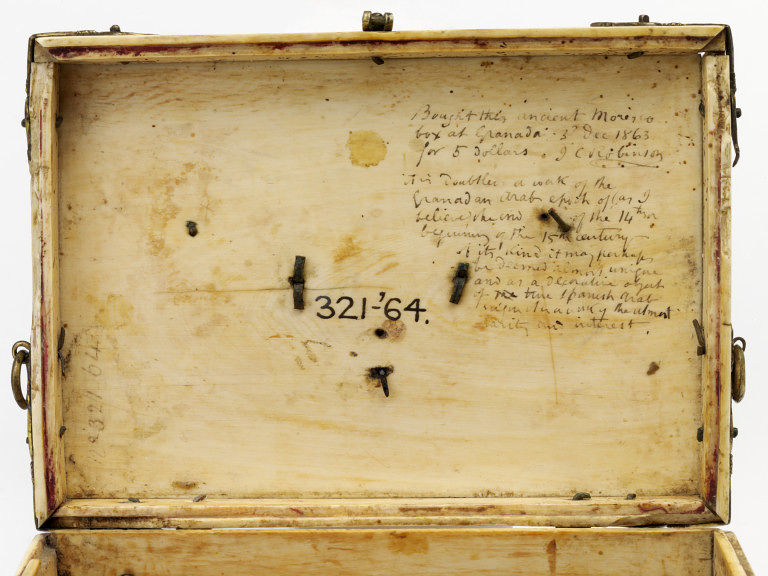 Bought this ancient Moresco
box at Granada. 3rd Dec 1863
for 5 dollars. J C Robinson
it is doubtless a work of the
Granadan Arab epoch of (as I
believe) the end of the 14th or
beginning of the 15th century
of its kind it may perhaps
be deemed almost unique
and as a decorative object
of the true Spanish Arab
work of the utmost
rarity and interest.
321-'64.
321 64